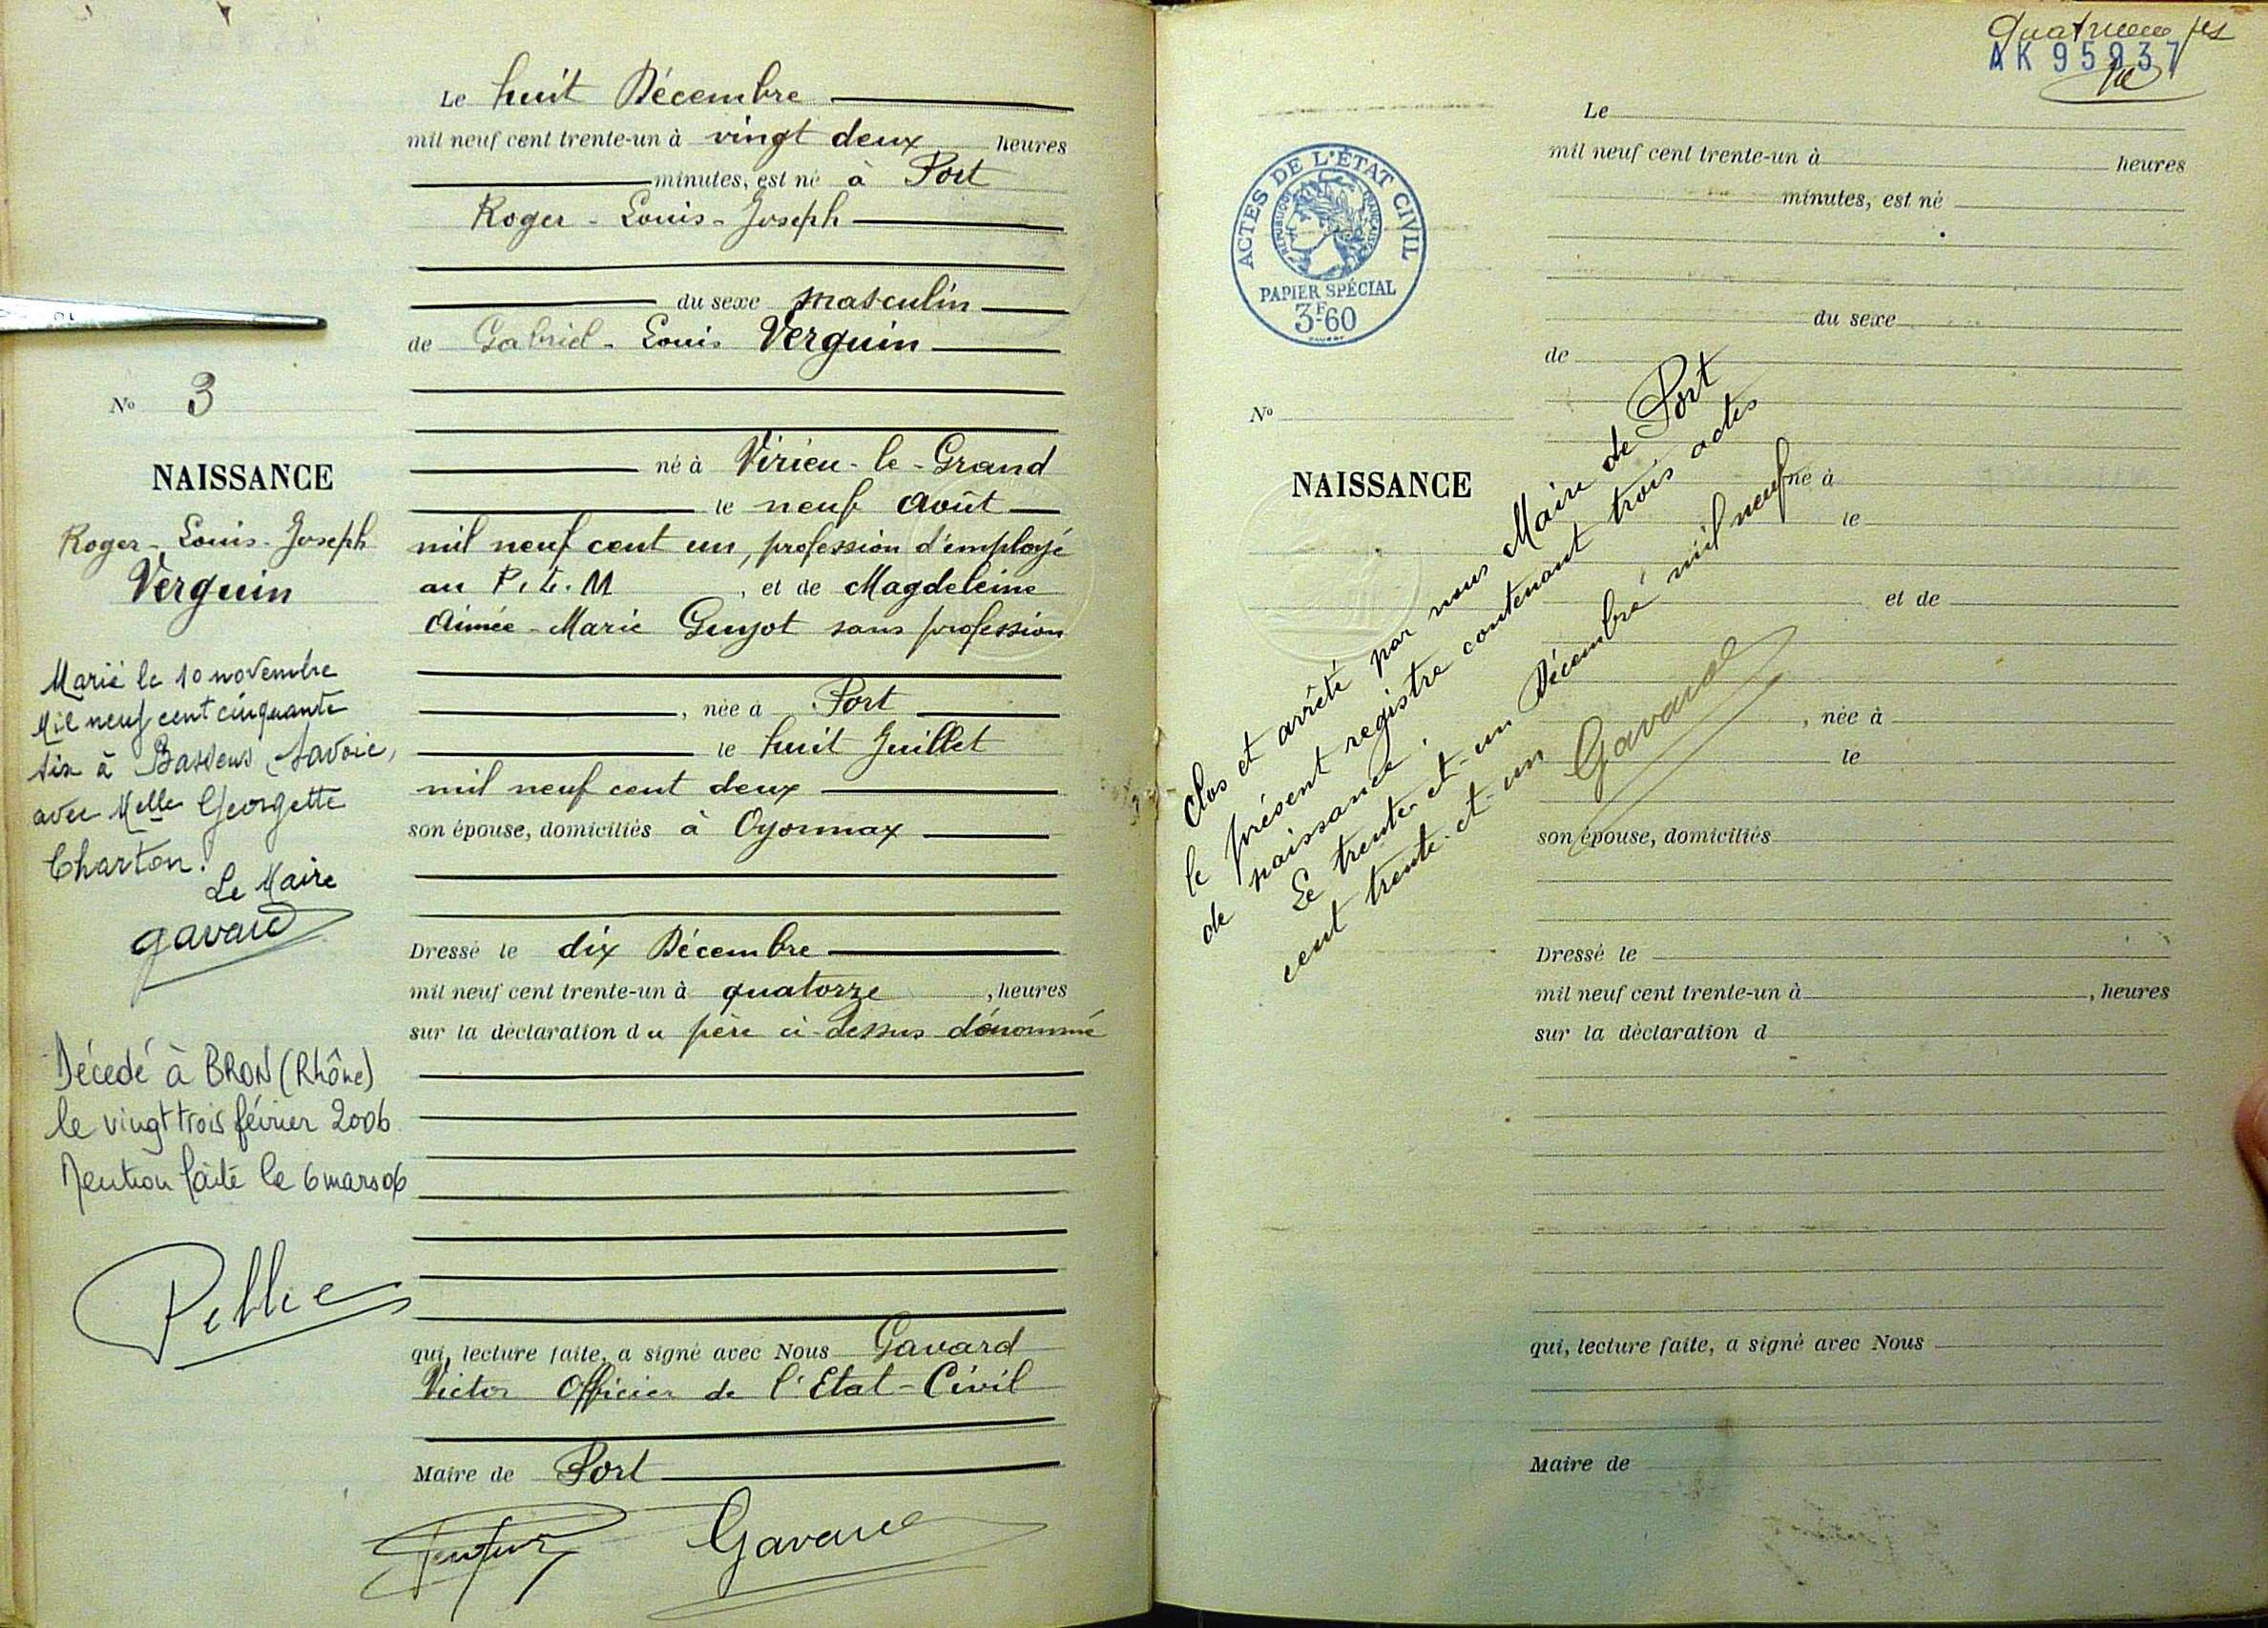 Le huit Décembre
mil neuf cent trente-un à vingt deux heures
minutes, est né à Port
Roger - Louis - Joseph
du sexe masculin
de Gabriel - Louis Verguin
né à Virieu - le - Grand
le neuf Août
mil neuf cent un, profession d'employé
au P. L. M , et de Magdeleine
Aimée - Marie Guyot sans profession
, née à Port
le huit Juillet
mil neuf cent deux
son épouse, domiciliés à Oyonnax
Dressé le dix Décembre
mil neuf cent trente-un à quatorze , heures
sur la déclaration du père ci-dessus dénommé
qui, lecture faite, a signé avec Nous Gavard
Victor Officier de l'Etat-Civil
Maire de Port
Gavard
No 3
NAISSANCE
Roger - Louis - Joseph
Verguin
Marié le 10 novembre
Mil neuf cent cinquante
six à Bassens, Savoie,
avec Melle Georgette
Charton.
Le Maire
Gavard
Décédé à BRON (Rhône)
le vingt trois février 2006
Mention faite le 6 mars 06
AK 95937
ACTES DE L'ÉTAT CIVIL
RÉPUBLIQUE FRANÇAISE
PAPIER SPÉCIAL
3F60
No
NAISSANCE
Le
mil neuf cent trente-un à heures
minutes, est né
du sexe
de
né à
le
et de
, née à
le
son épouse, domiciliés
Dressé le
mil neuf cent trente-un à , heures
sur la déclaration d
qui, lecture faite, a signé avec Nous
Maire de
Clos et arrêté par nous Maire de Port
le présent registre contenant trois actes
de naissance.
Le trente-et-un Décembre mil neuf
cent trente-et-un
Gavard